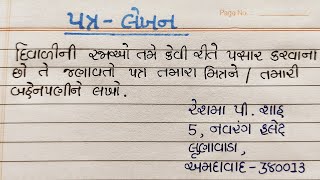 Page No.
પત્ર - લેખન
દિવાળીની રજાઓ તમે કેવી રીતે પસાર કરવાના
છો તે જણાવતો પત્ર તમારા મિત્રને / તમારી
બહેનપણીને લખો.
રેશમા પી. શાહ
5, નવરંગ ફ્લેટ
લુણાવાડા,
અમદાવાદ - 380013